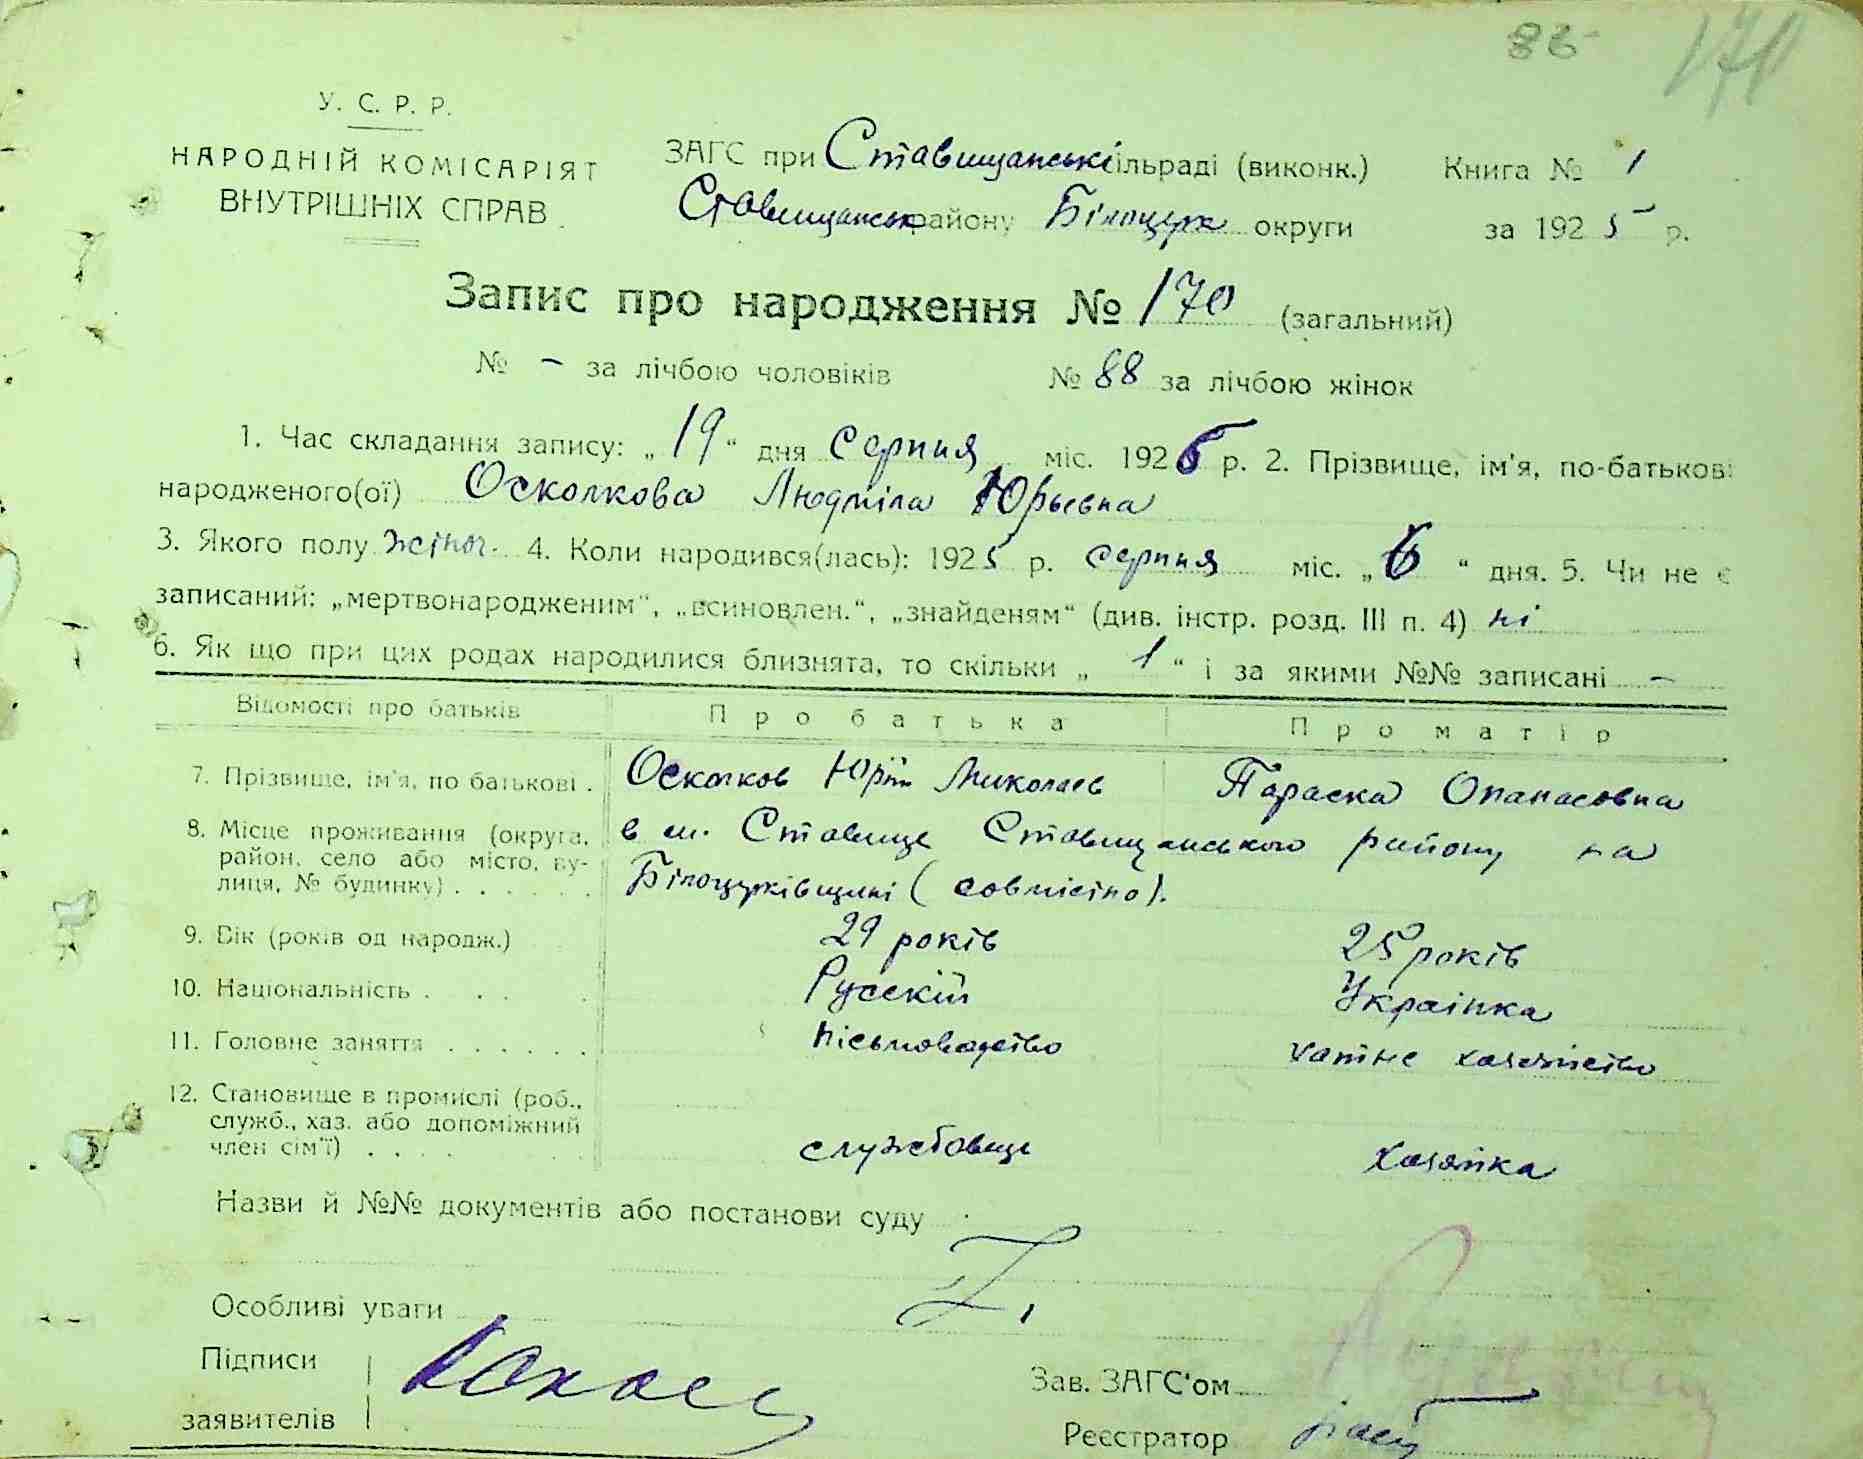 86 170
У. С. Р. Р.
НАРОДНІЙ КОМІСАРІЯТ
ВНУТРІШНІХ СПРАВ
ЗАГС при Ставищанські сільраді (виконк.) Книга № 1
Ставищанськ району Білоцерк округи за 1925 р.
Запис про народження № 170 (загальний)
№ – за лічбою чоловіків № 88 за лічбою жінок
1. Час складання запису: „19“ дня серпня міс. 1925 р. 2. Прізвище, ім'я, по-батькові
народженого(ої) Осколкова Людміла Юрьевна
3. Якого полу жіноч. 4. Коли народився(лась): 1925 р. серпня міс. „6“ дня. 5. Чи не є
записаний: „мертвонародженим“, „всиновлен.“, „знайденям“ (див. інстр. розд. III п. 4) ні
6. Як що при цих родах народилися близнята, то скільки „1“ і за якими №№ записані –
Відомості про батьків Про батька Про матір
7. Прізвище, ім'я, по батькові . Осколков Юрій Миколаев Параска Опанасовна
8. Місце проживання (округа, район, село або місто, вулиця, № будинку) . . . . . . в м. Ставище Ставищанського району на
Білоцерківщині (совмісно).
9. Вік (років од народж.) 29 років 25 років
10. Національність . . . . Русскій Українка
11. Головне заняття . . . . . . пісьмоводство хатне хазяйство
12. Становище в промислі (роб.,
служб., хаз. або допоміжний
член сім'ї) . . . . службовець хазяйка
Назви й №№ документів або постанови суду
Особливі уваги
Підписи
заявителів
Зав. ЗАГС'ом
Реєстратор